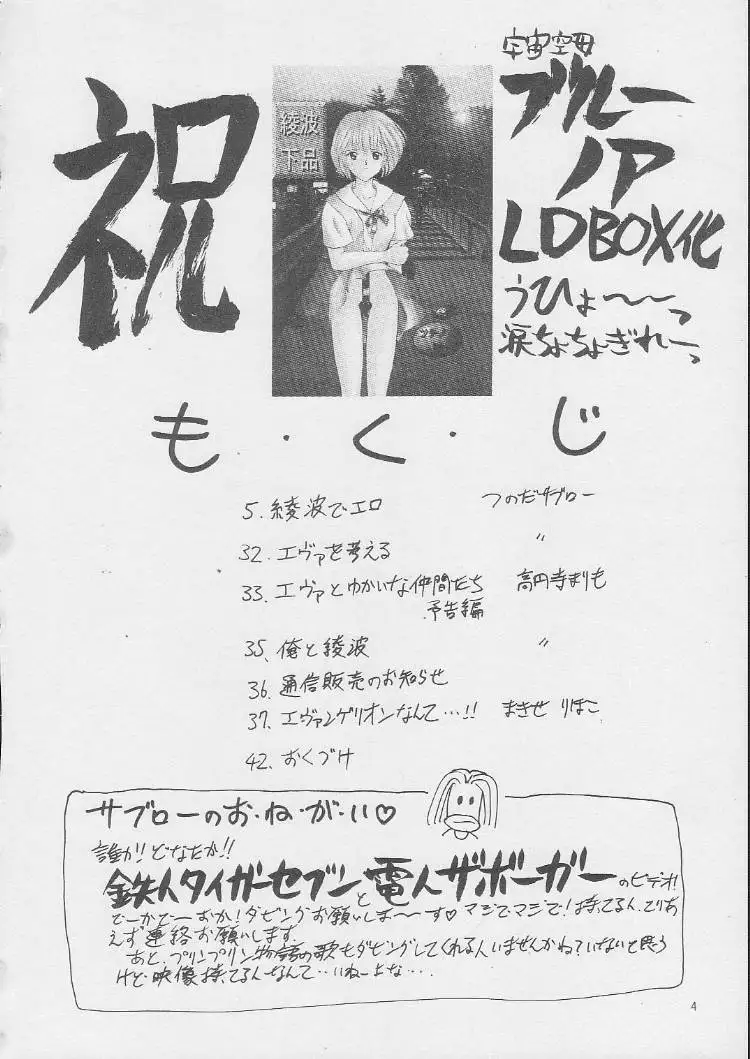 祝
綾波
下品
宇宙空母
ブルー
ノア
LDBOX化
うひょ〜〜っ
涙ちょちょぎれーっ
も・く・じ
5. 綾波でエロ つのだサブロー
32. エヴァを考える 〃
33. エヴァとゆかいな仲間たち 高円寺まりも
予告編
35. 俺と綾波 〃
36. 通信販売のお知らせ
37. エヴァンゲリオンなんて…!! まきせ りほこ
42. おくづけ
サブローのお・ね・が・い♡
誰か!どなたか!!
鉄人タイガーセブンと電人ザボーガーのビデオ!
どーかどーおか!ダビングお願いしま〜〜す♡マジでマジで!持ってる人、とりあ
えず連絡お願いします。
あと、プリンプリン物語の歌もダビングしてくれる人いませんかね?いないと思う
けど、映像持ってる人なんて…いねーよな…。
4